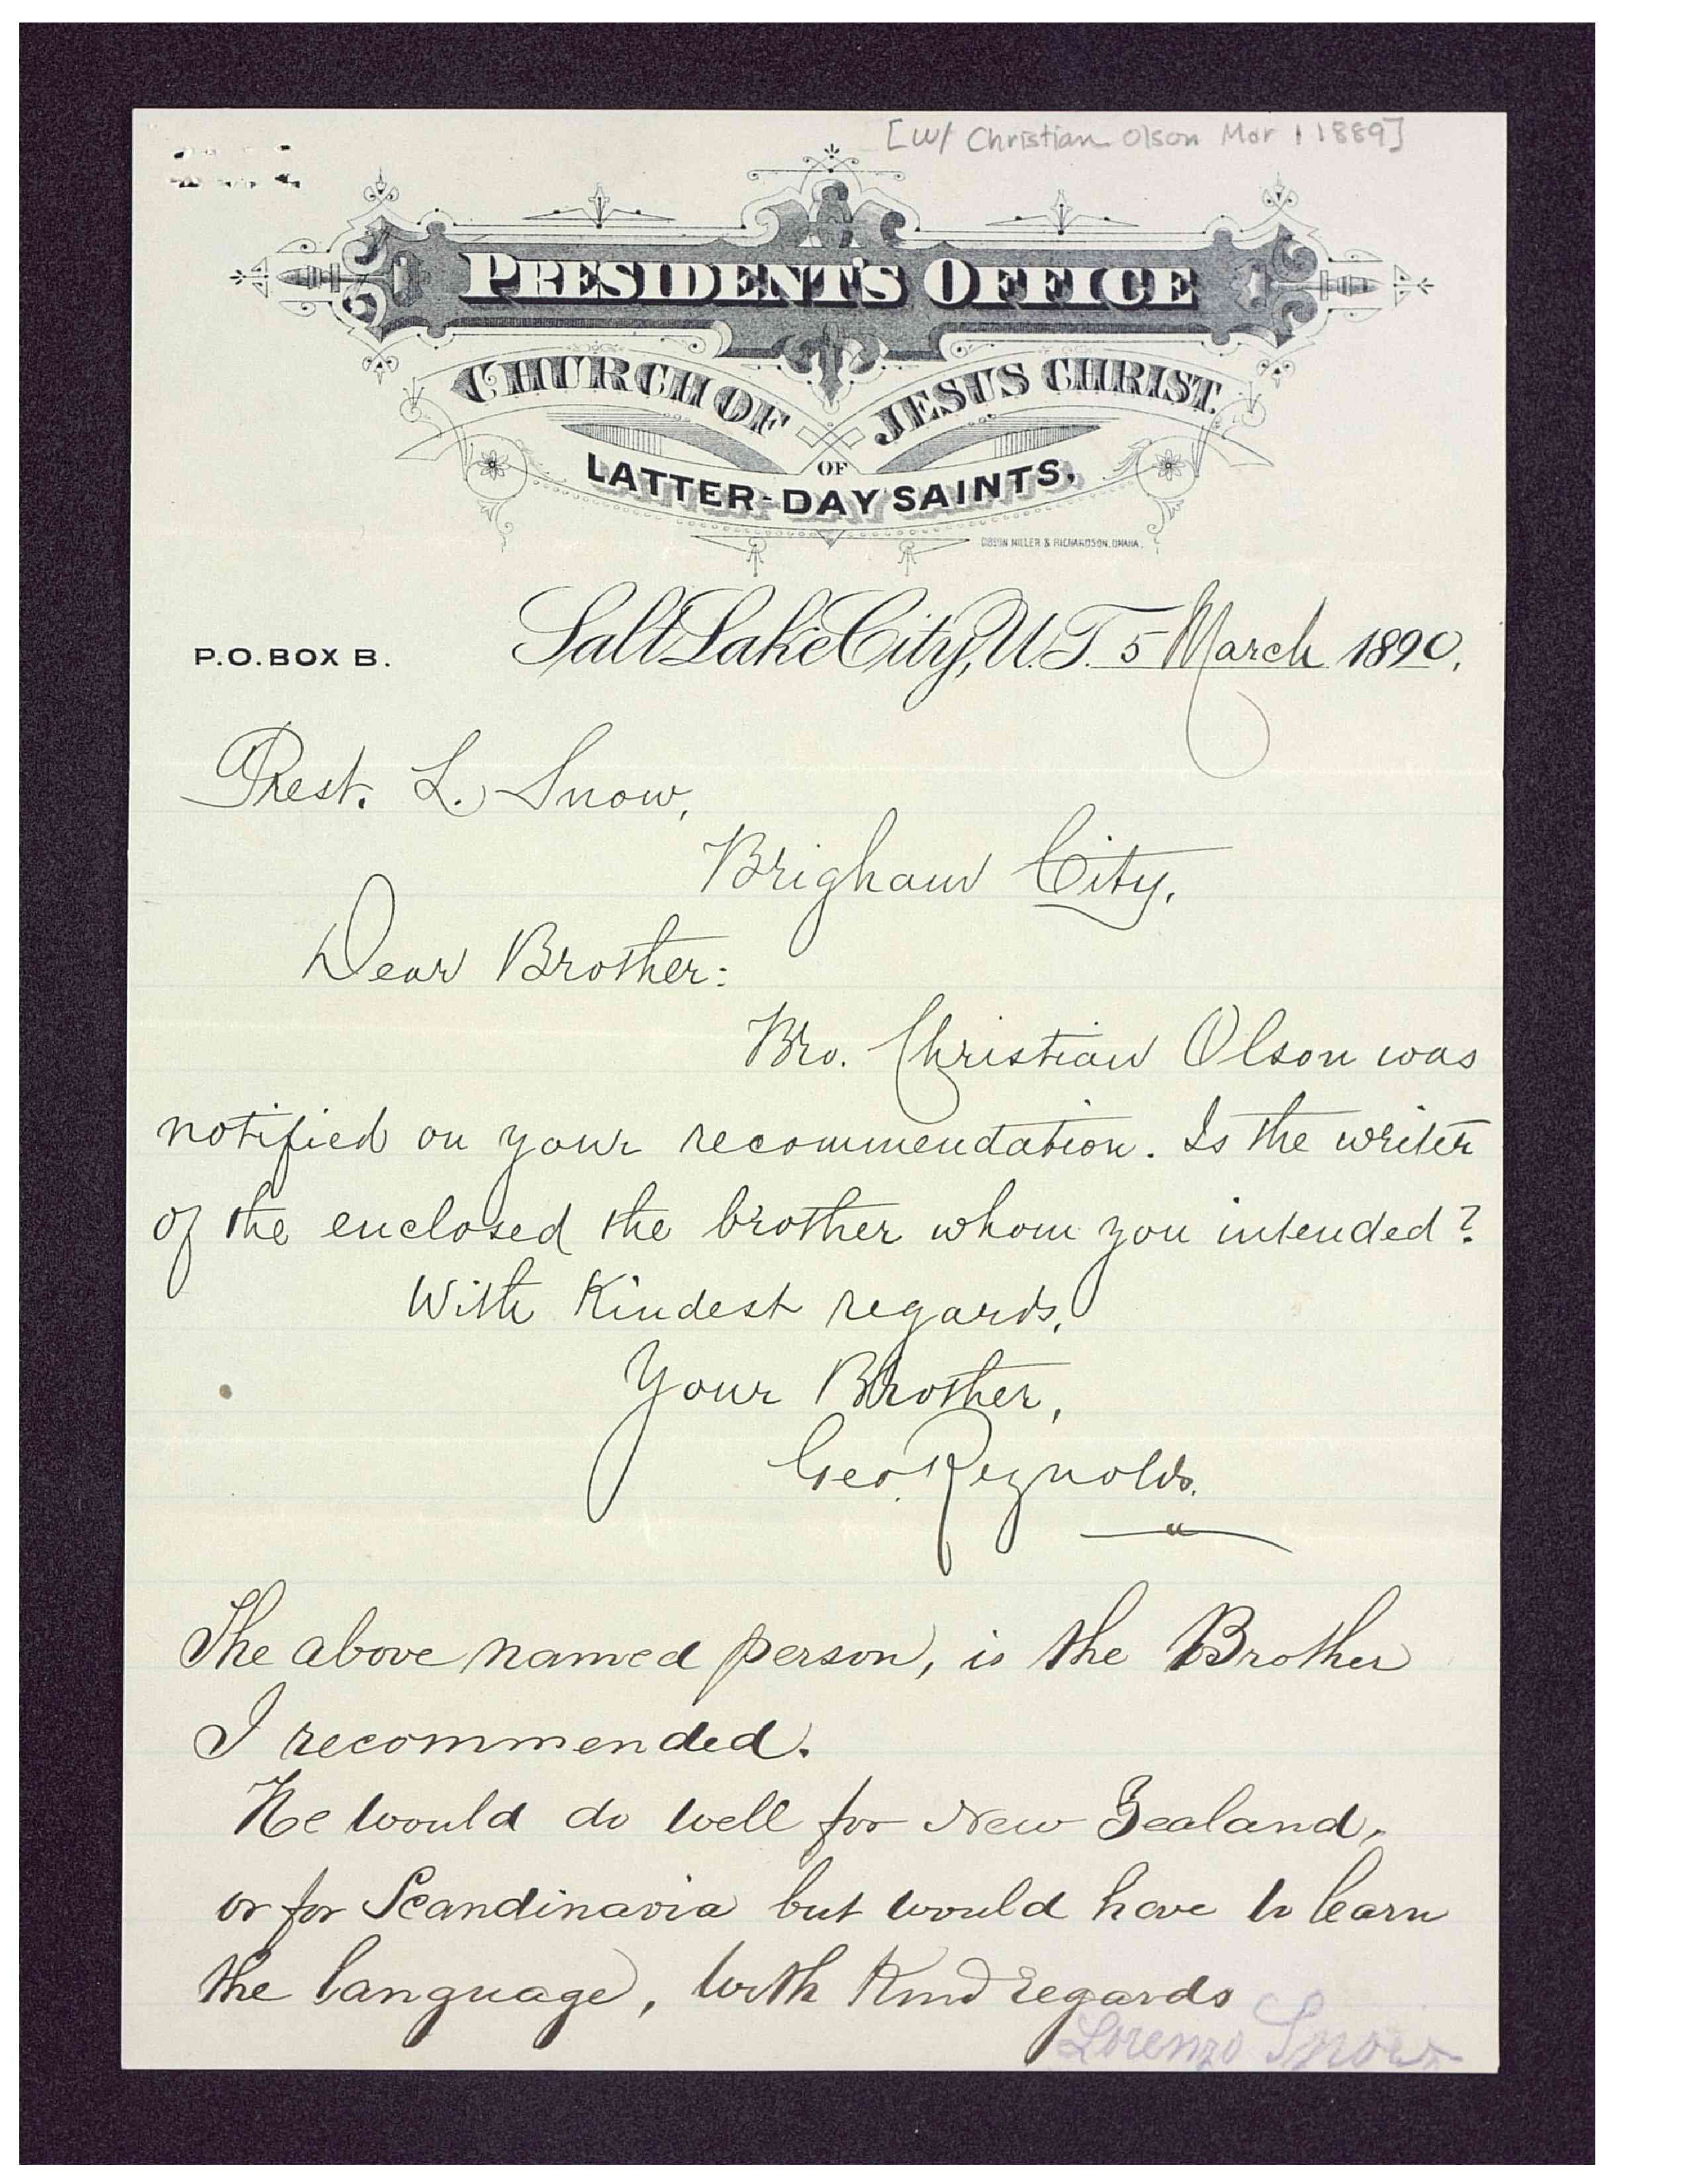 [w/ Christian Olson Mar 1 1889]
PRESIDENT'S OFFICE
CHURCH OF JESUS CHRIST
OF
LATTER-DAY SAINTS.
P.O. BOX B.
Salt Lake City, U.T. 5 March 1890.
Prest. L. Snow,
Brigham City.
Dear Brother:
Bro. Christian Olson was
notified on your recommendation. Is the writer
of the enclosed the brother whom you intended?
With Kindest regards,
Your Brother,
Geo. Reynolds.
The above named person, is the Brother
I recommended.
He would do well for New Zealand,
or for Scandinavia but would have to learn
the language, with Kind regards
Lorenzo Snow